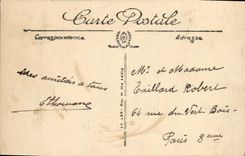 Carte Postale
Correspondance
Adresse
Mes amitiés à tous
Mr et Madame
Taillard Robert
64 rue du Vert Bois
Paris 3eme